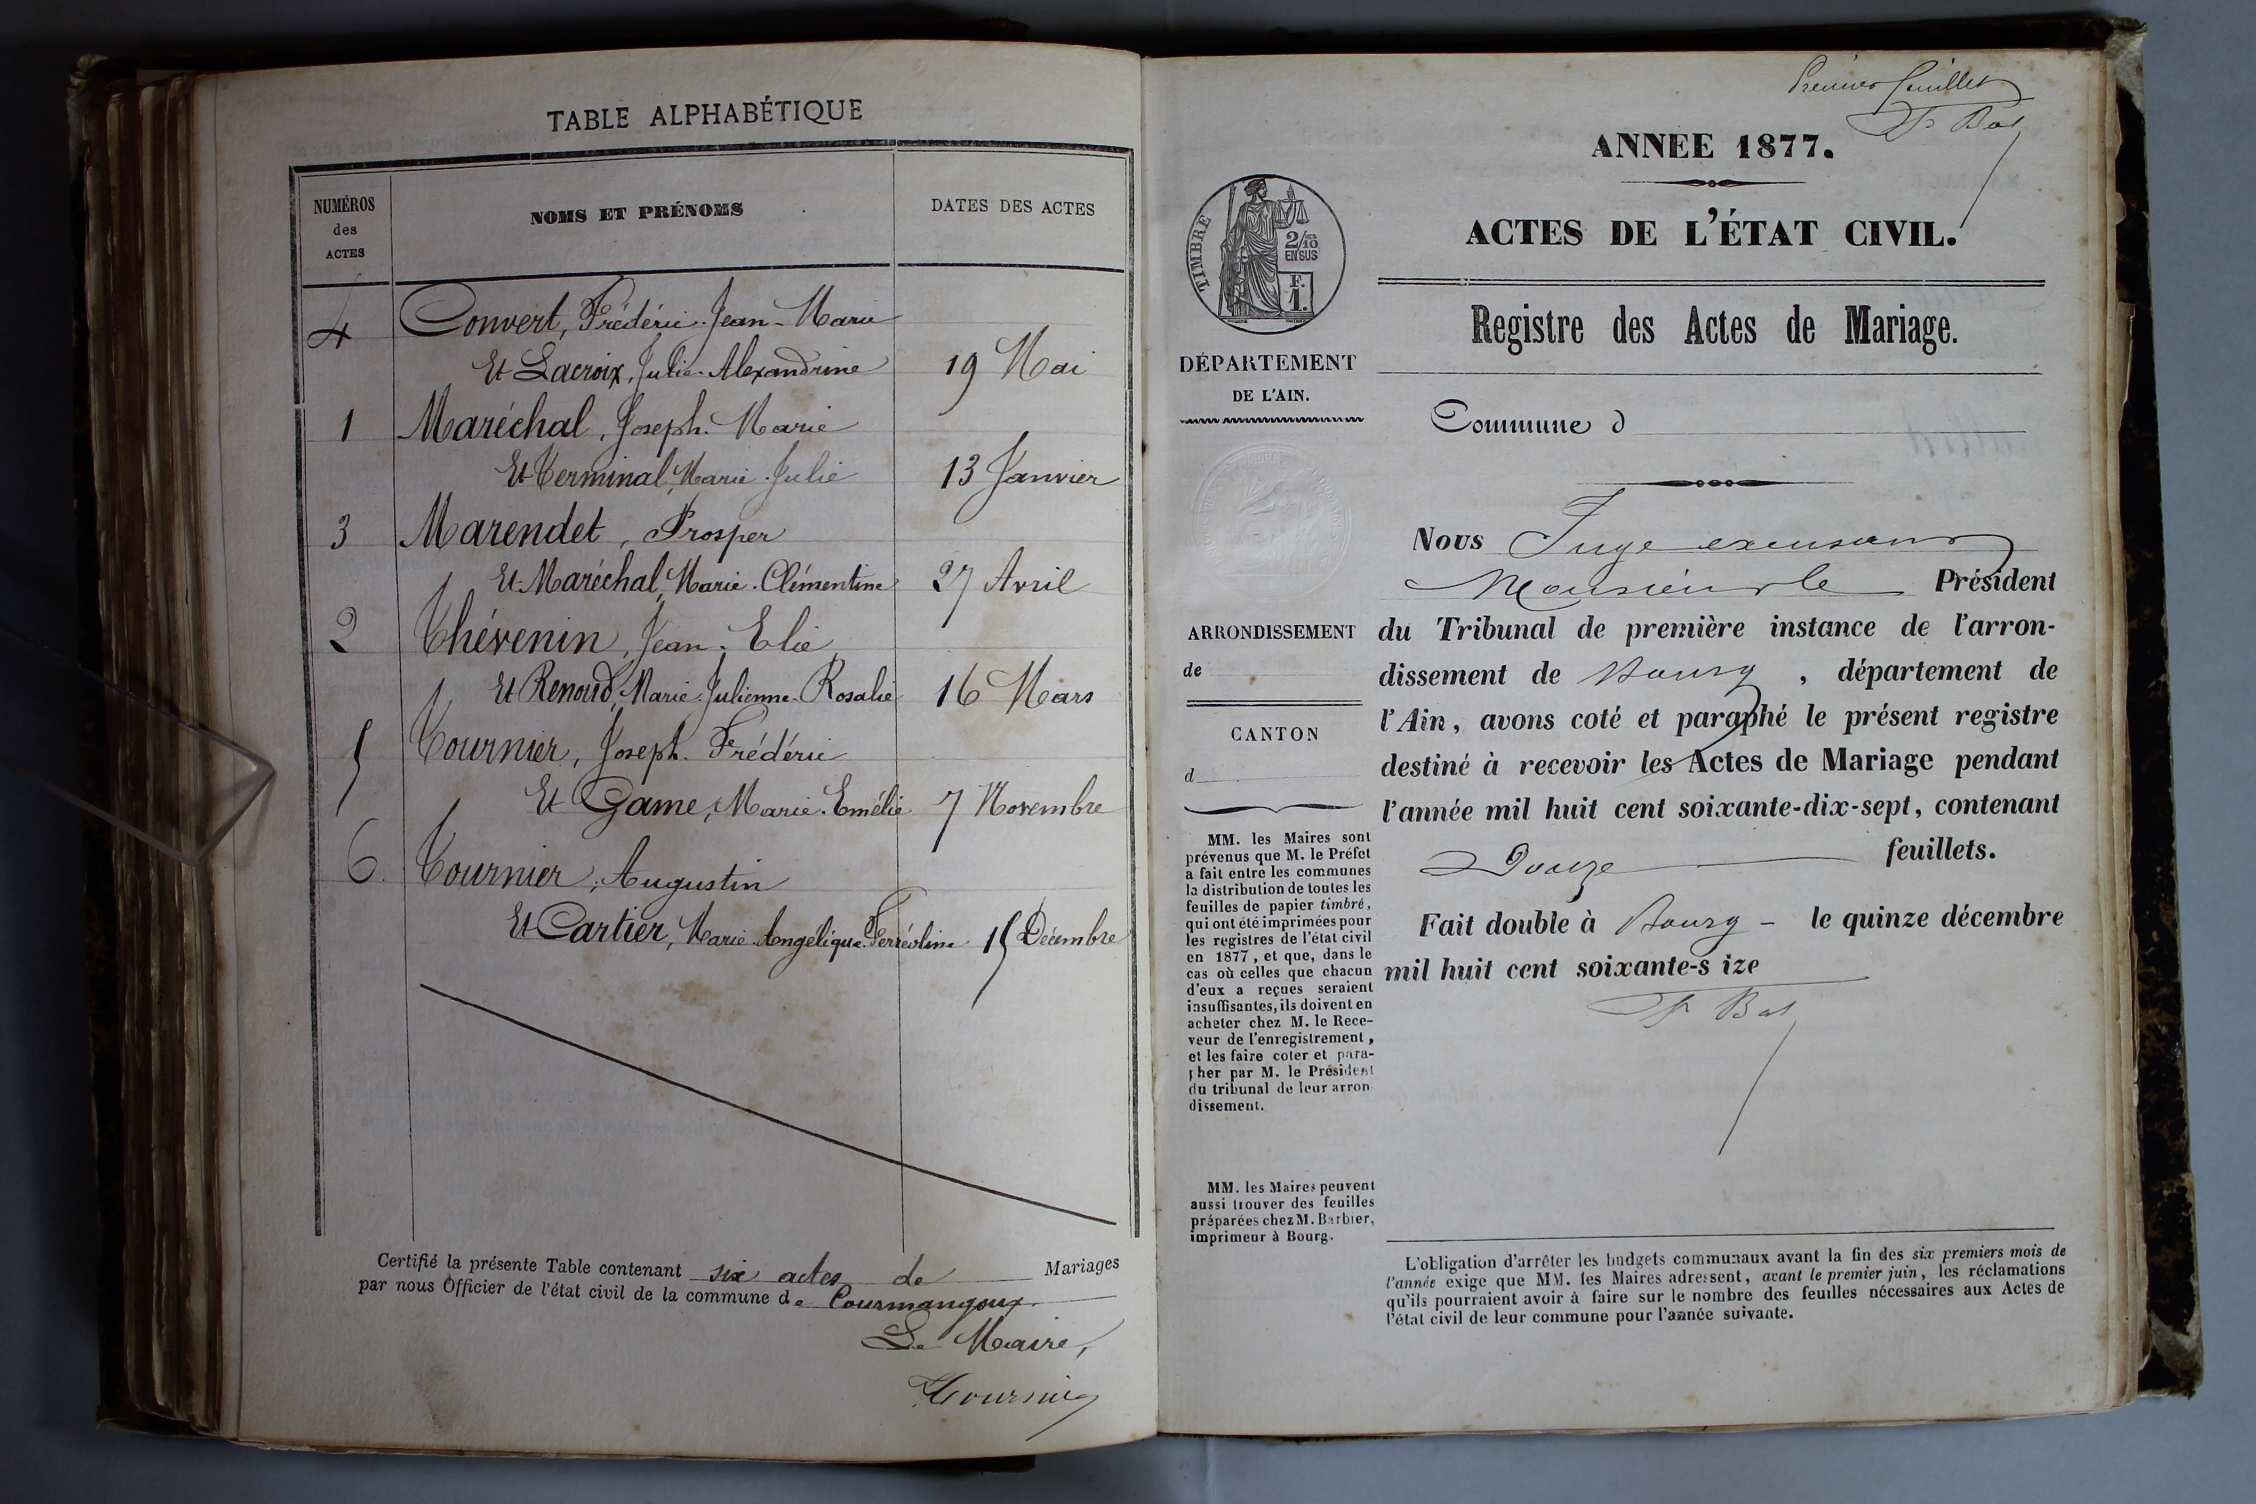 TABLE ALPHABÉTIQUE
NUMÉROS
des
ACTES
NOMS ET PRÉNOMS
DATES DES ACTES
4 Convert, Frédéric-Jean-Marie
Et Lacroix, Julie-Alexandrine 19 Mai
1 Maréchal, Joseph-Marie
Et Terminal, Marie-Julie 13 Janvier
3 Marendet, Prosper
Et Maréchal, Marie-Clémentine 27 Avril
2 Thévenin, Jean-Elie
Et Renoud, Marie-Julienne-Rosalie 16 Mars
5 Tournier, Joseph-Frédéric
Et Game, Marie-Emélie 7 Novembre
6. Tournier, Augustin
Et Cartier, Marie-Angélique-Ferréoline 15 Décembre
Certifié la présente Table contenant six actes de Mariages
par nous Officier de l'état civil de la commune de Courmangoux.
Le Maire,
Tournier
Premier feuillet
ANNEE 1877.
ACTES DE L'ÉTAT CIVIL.
Registre des Actes de Mariage.
TIMBRE
2/10
EN SUS
F.
1.
DÉPARTEMENT
DE L'AIN.
ARRONDISSEMENT
de
CANTON
d
MM. les Maires sont
prévenus que M. le Préfet
a fait entre les communes
la distribution de toutes les
feuilles de papier timbré,
qui ont été imprimées pour
les registres de l'état civil
en 1877, et que, dans le
cas où celles que chacun
d'eux a reçues seraient
insuffisantes, ils doivent en
acheter chez M. le Rece-
veur de l'enregistrement,
et les faire coter et para-
pher par M. le Président
du tribunal de leur arron
dissement.
MM. les Maires peuvent
aussi trouver des feuilles
préparées chez M. Barbier,
imprimeur à Bourg.
Commune d
Nous Juge
Monsieur le Président
du Tribunal de première instance de l'arron-
dissement de Bourg, département de
l'Ain, avons coté et paraphé le présent registre
destiné à recevoir les Actes de Mariage pendant
l'année mil huit cent soixante-dix-sept, contenant
Douze feuillets.
Fait double à Bourg - le quinze décembre
mil huit cent soixante-s ize
L'obligation d'arrêter les budgets communaux avant la fin des six premiers mois de
l'année exige que MM. les Maires adressent, avant le premier juin, les réclamations
qu'ils pourraient avoir à faire sur le nombre des feuilles nécessaires aux Actes de
l'état civil de leur commune pour l'année suivante.